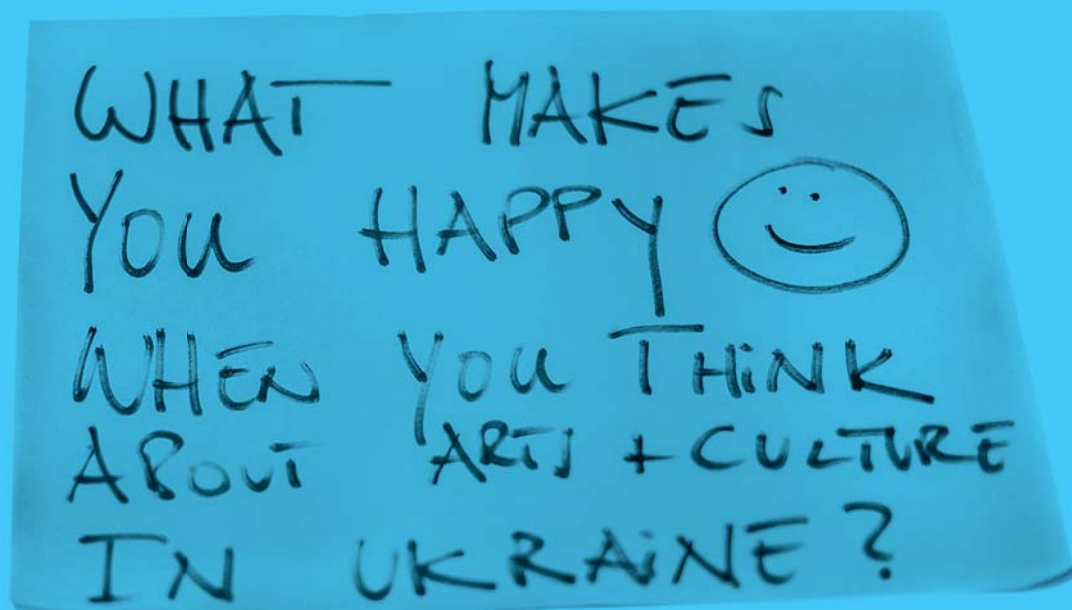 WHAT MAKES
YOU HAPPY
WHEN YOU THINK
ABOUT ARTS + CULTURE
IN UKRAINE?